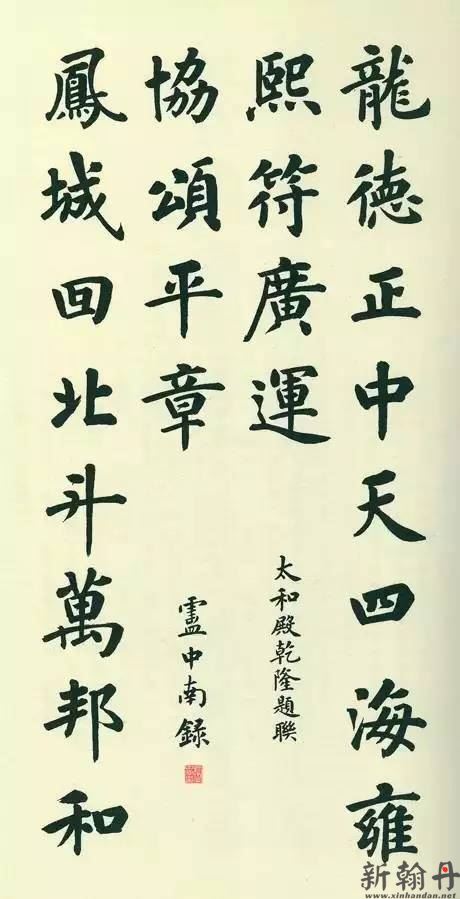 龍德正中天四海雍
熙符廣運
太和殿乾隆題聯
鳳城回北斗萬邦和
協頌平章
盧中南録
新翰丹
www.xinhandan.net